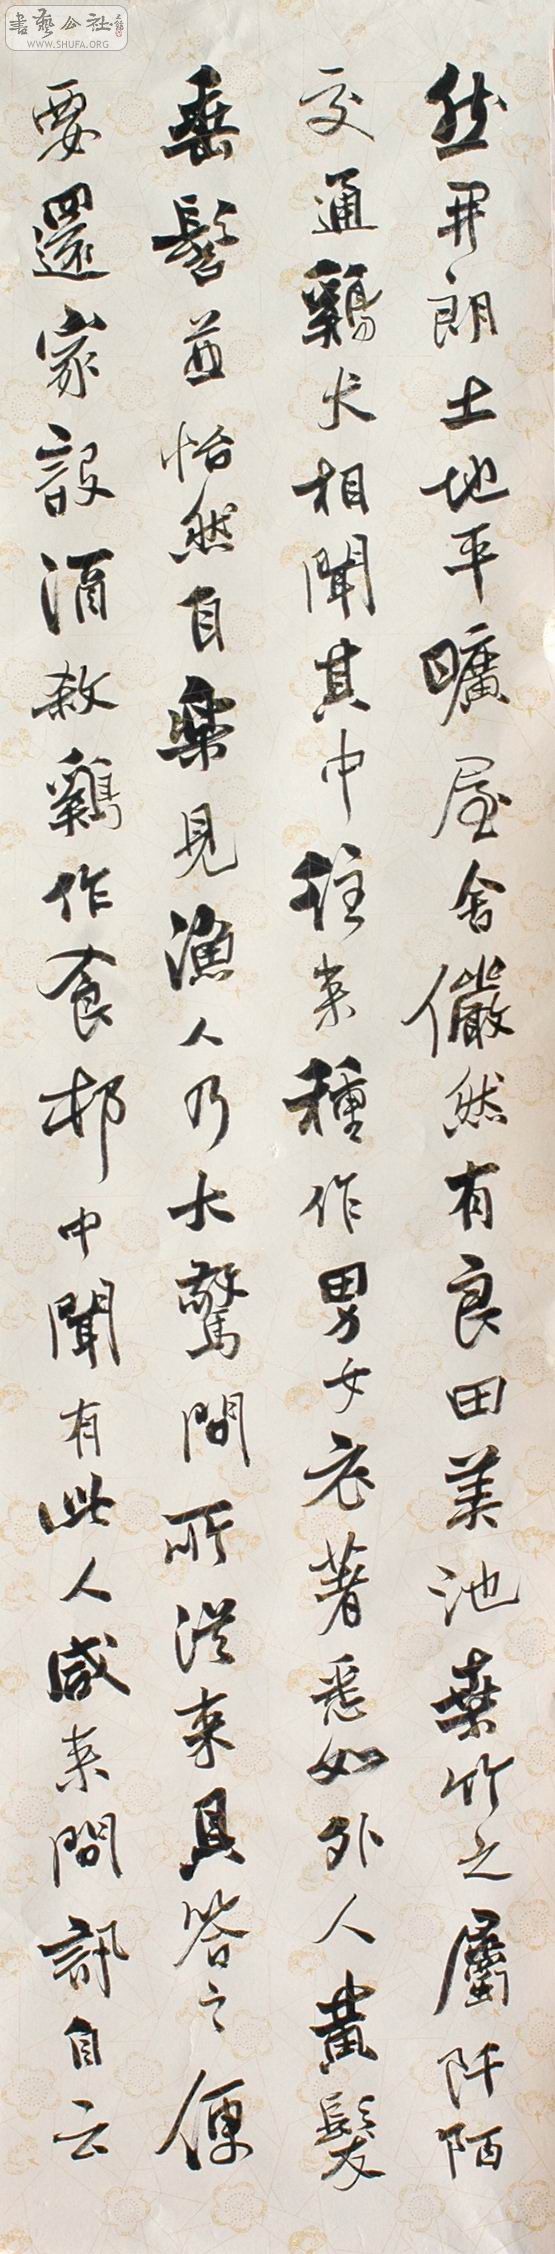 書藝公社
WWW.SHUFA.ORG
然開朗土地平曠屋舍儼然有良田美池桑竹之屬阡陌
交通鷄犬相聞其中往來種作男女衣著悉如外人黃髮
垂髫並怡然自樂見漁人乃大驚問所從來具答之便
要還家設酒殺鷄作食邨中聞有此人咸来問訊自云